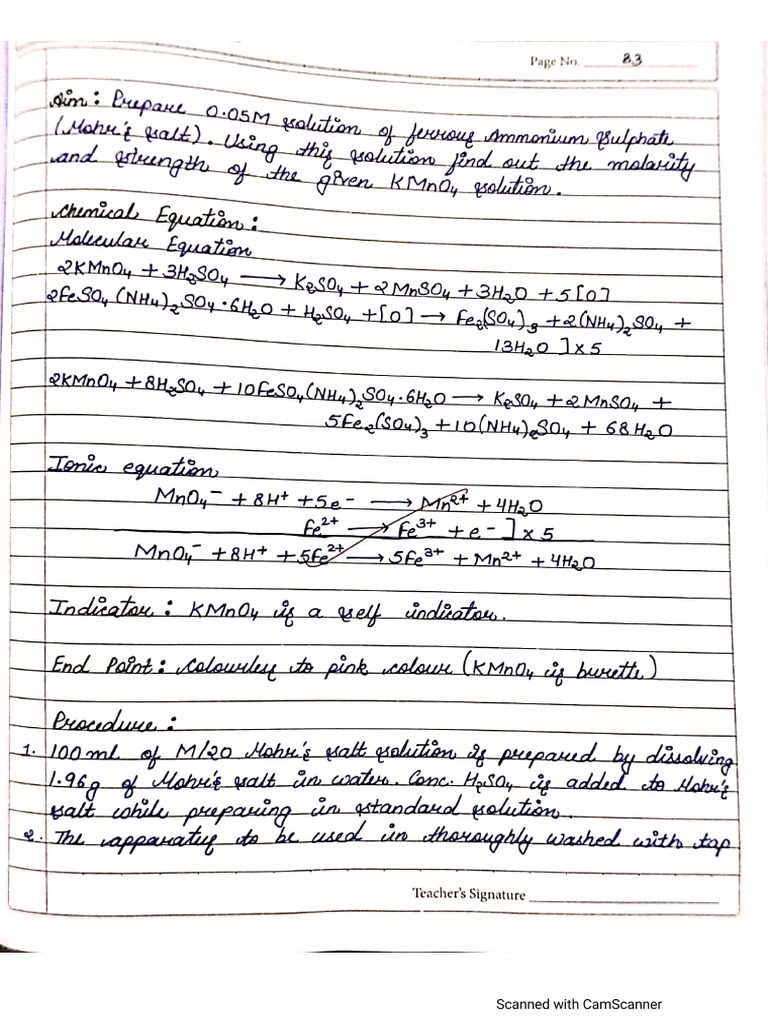 Page No. 83
Aim: Prepare 0.05M solution of ferrous Ammonium Sulphate
(Mohr's salt). Using this solution find out the molarity
and strength of the given KMnO₄ solution.
Chemical Equation:
Molecular Equation
2KMnO₄ + 3H₂SO₄ ⟶ K₂SO₄ + 2MnSO₄ + 3H₂O + 5[O]
2FeSO₄(NH₄)₂SO₄·6H₂O + H₂SO₄ + [O] → Fe₂(SO₄)₃ + 2(NH₄)₂SO₄ +
13H₂O ] x 5
2KMnO₄ + 8H₂SO₄ + 10FeSO₄(NH₄)₂SO₄·6H₂O ⟶ K₂SO₄ + 2MnSO₄ +
5Fe₂(SO₄)₃ + 10(NH₄)₂SO₄ + 68H₂O
Ionic equation
MnO₄⁻ + 8H⁺ + 5e⁻ ⟶ Mn²⁺ + 4H₂O
Fe²⁺ ⟶ Fe³⁺ + e⁻ ] x 5
MnO₄⁻ + 8H⁺ + 5Fe²⁺ ⟶ 5Fe³⁺ + Mn²⁺ + 4H₂O
Indicator: KMnO₄ is a self indicator.
End Point: Colourless to pink colour (KMnO₄ is burette)
Procedure:
1. 100ml of M/20 Mohr's salt solution is prepared by dissolving
1.96g of Mohr's salt in water. Conc. H₂SO₄ is added to Mohr's
salt while preparing in standard solution.
2. The apparatus to be used in thoroughly washed with tap
Teacher's Signature
Scanned with CamScanner